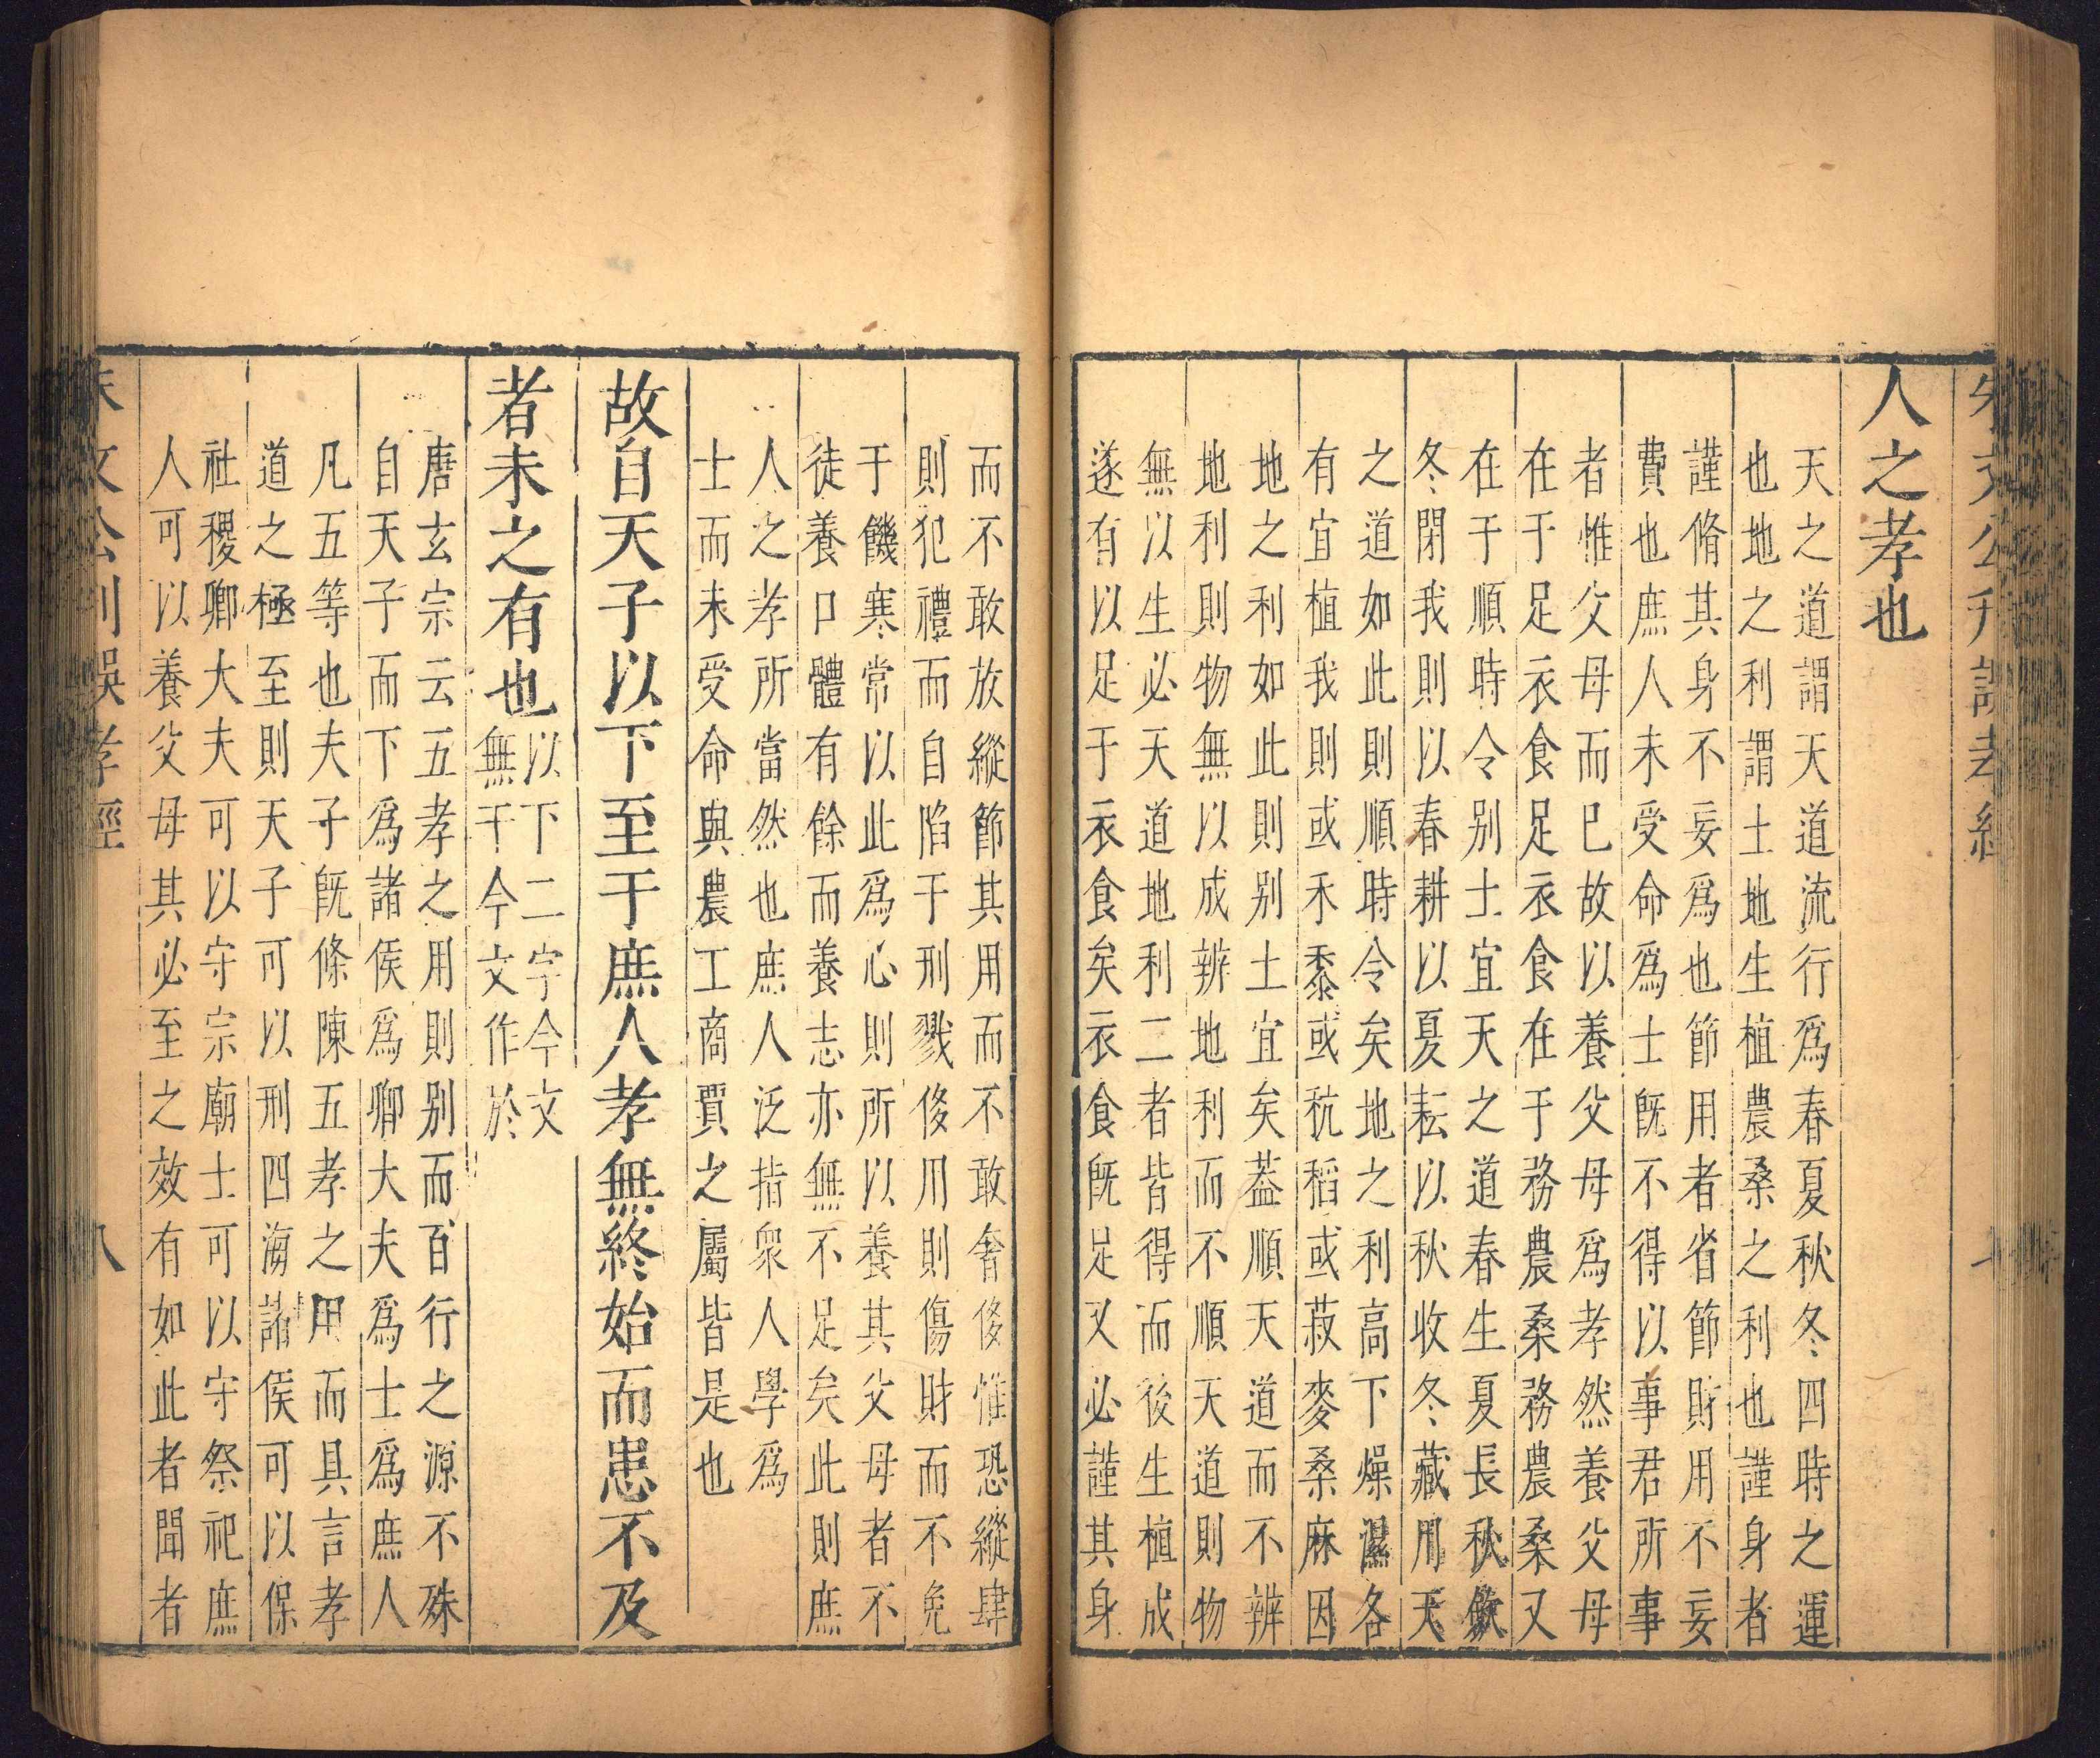 朱文公刊誤孝經
人之孝也
天之道謂天道流行爲春夏秋冬四時之運
也地之利謂土地生植農桑之利也謹身者
謹脩其身不妄爲也節用者省節財用不妄
費也庶人未受命爲士旣不得以事君所事
者惟父母而已故以養父母爲孝然養父母
在于足衣食足衣食在于務農桑務農桑又
在于順時令别土宜天之道春生夏長秋斂
冬閉我則以春耕以夏耘以秋收冬藏用天
之道如此則順時令矣地之利高下燥濕各
有宜植我則或禾黍或秔稻或菽麥桑麻因
地之利如此則别土宜矣葢順天道而不辨
地利則物無以成辨地利而不順天道則物
無以生必天道地利二者皆得而後生植成
遂有以足于衣食矣衣食旣足又必謹其身
而不敢放縱節其用而不敢奢侈惟恐縱肆
則犯禮而自陷于刑戮侈用則傷財而不免
于饑寒常以此爲心則所以養其父母者不
徒養口體有餘而養志亦無不足矣此則庶
人之孝所當然也庶人泛指衆人學爲
士而未受命與農工商賈之屬皆是也
故自天子以下至于庶人孝無終始而患不及
者未之有也
以下二字今文
無于今文作於
唐玄宗云五孝之用則别而百行之源不殊
自天子而下爲諸侯爲卿大夫爲士爲庶人
凡五等也夫子旣條陳五孝之用而具言孝
道之極至則天子可以刑四海諸侯可以保
社稷卿大夫可以守宗廟士可以守祭祀庶
人可以養父母其必至之效有如此者聞者
朱文公刊誤孝經
八